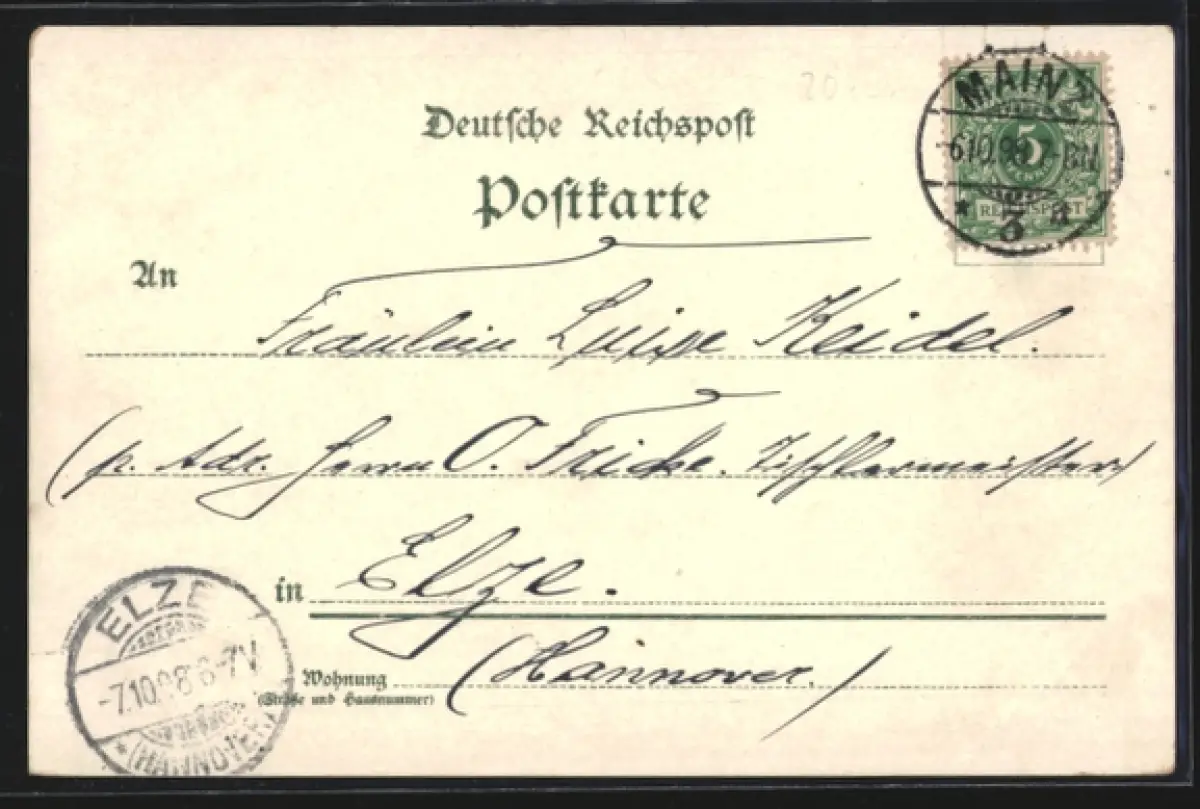 Deutsche Reichspost
Postkarte
MAINZ
5
REICHSPOST
3
An
Fräulein Luise Keidel.
(p. Adr. Herrn O. Fricke. Tischlermeister)
in Elze.
Wohnung (Hannover.)
(Straße und Hausnummer)
ELZE
-7.10.98 6-7V
* (HANNOVER)